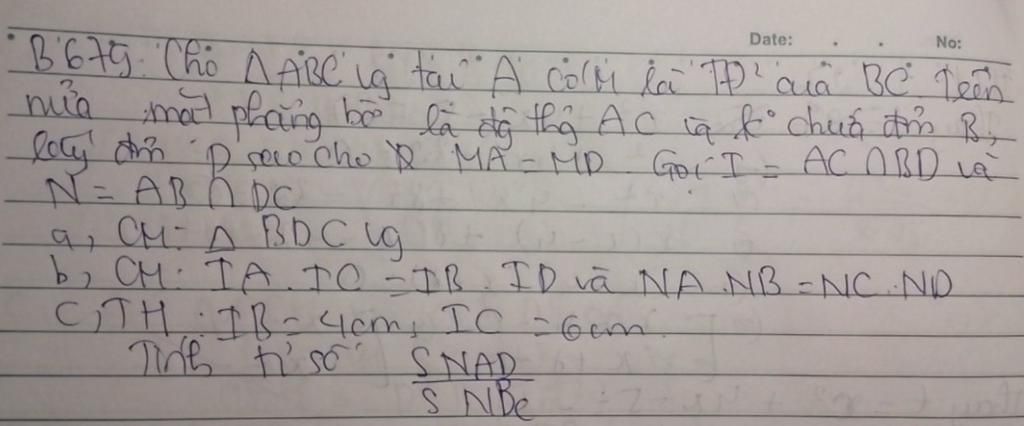 Date: . . No:
B679. Cho ΔABC vg tại A có M là TĐ² của BC Trên
nửa mặt phẳng bờ là đg thg AC và k° chứa đm B,
lấy đm D sao cho MA = MD. Gọi I = AC ∩ BD và
N = AB ∩ DC
a, CM: Δ BDC vg
b, CM: IA . IC = IB . ID và NA . NB = NC . ND
C, TH : IB = 4cm, IC = 6cm.
Tính tỉ số S NAD
S NBC